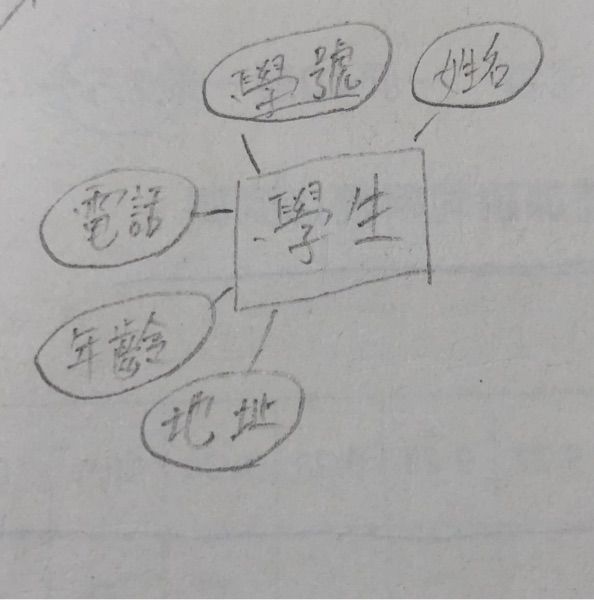 學號
姓名
電話
學生
年齡
地址